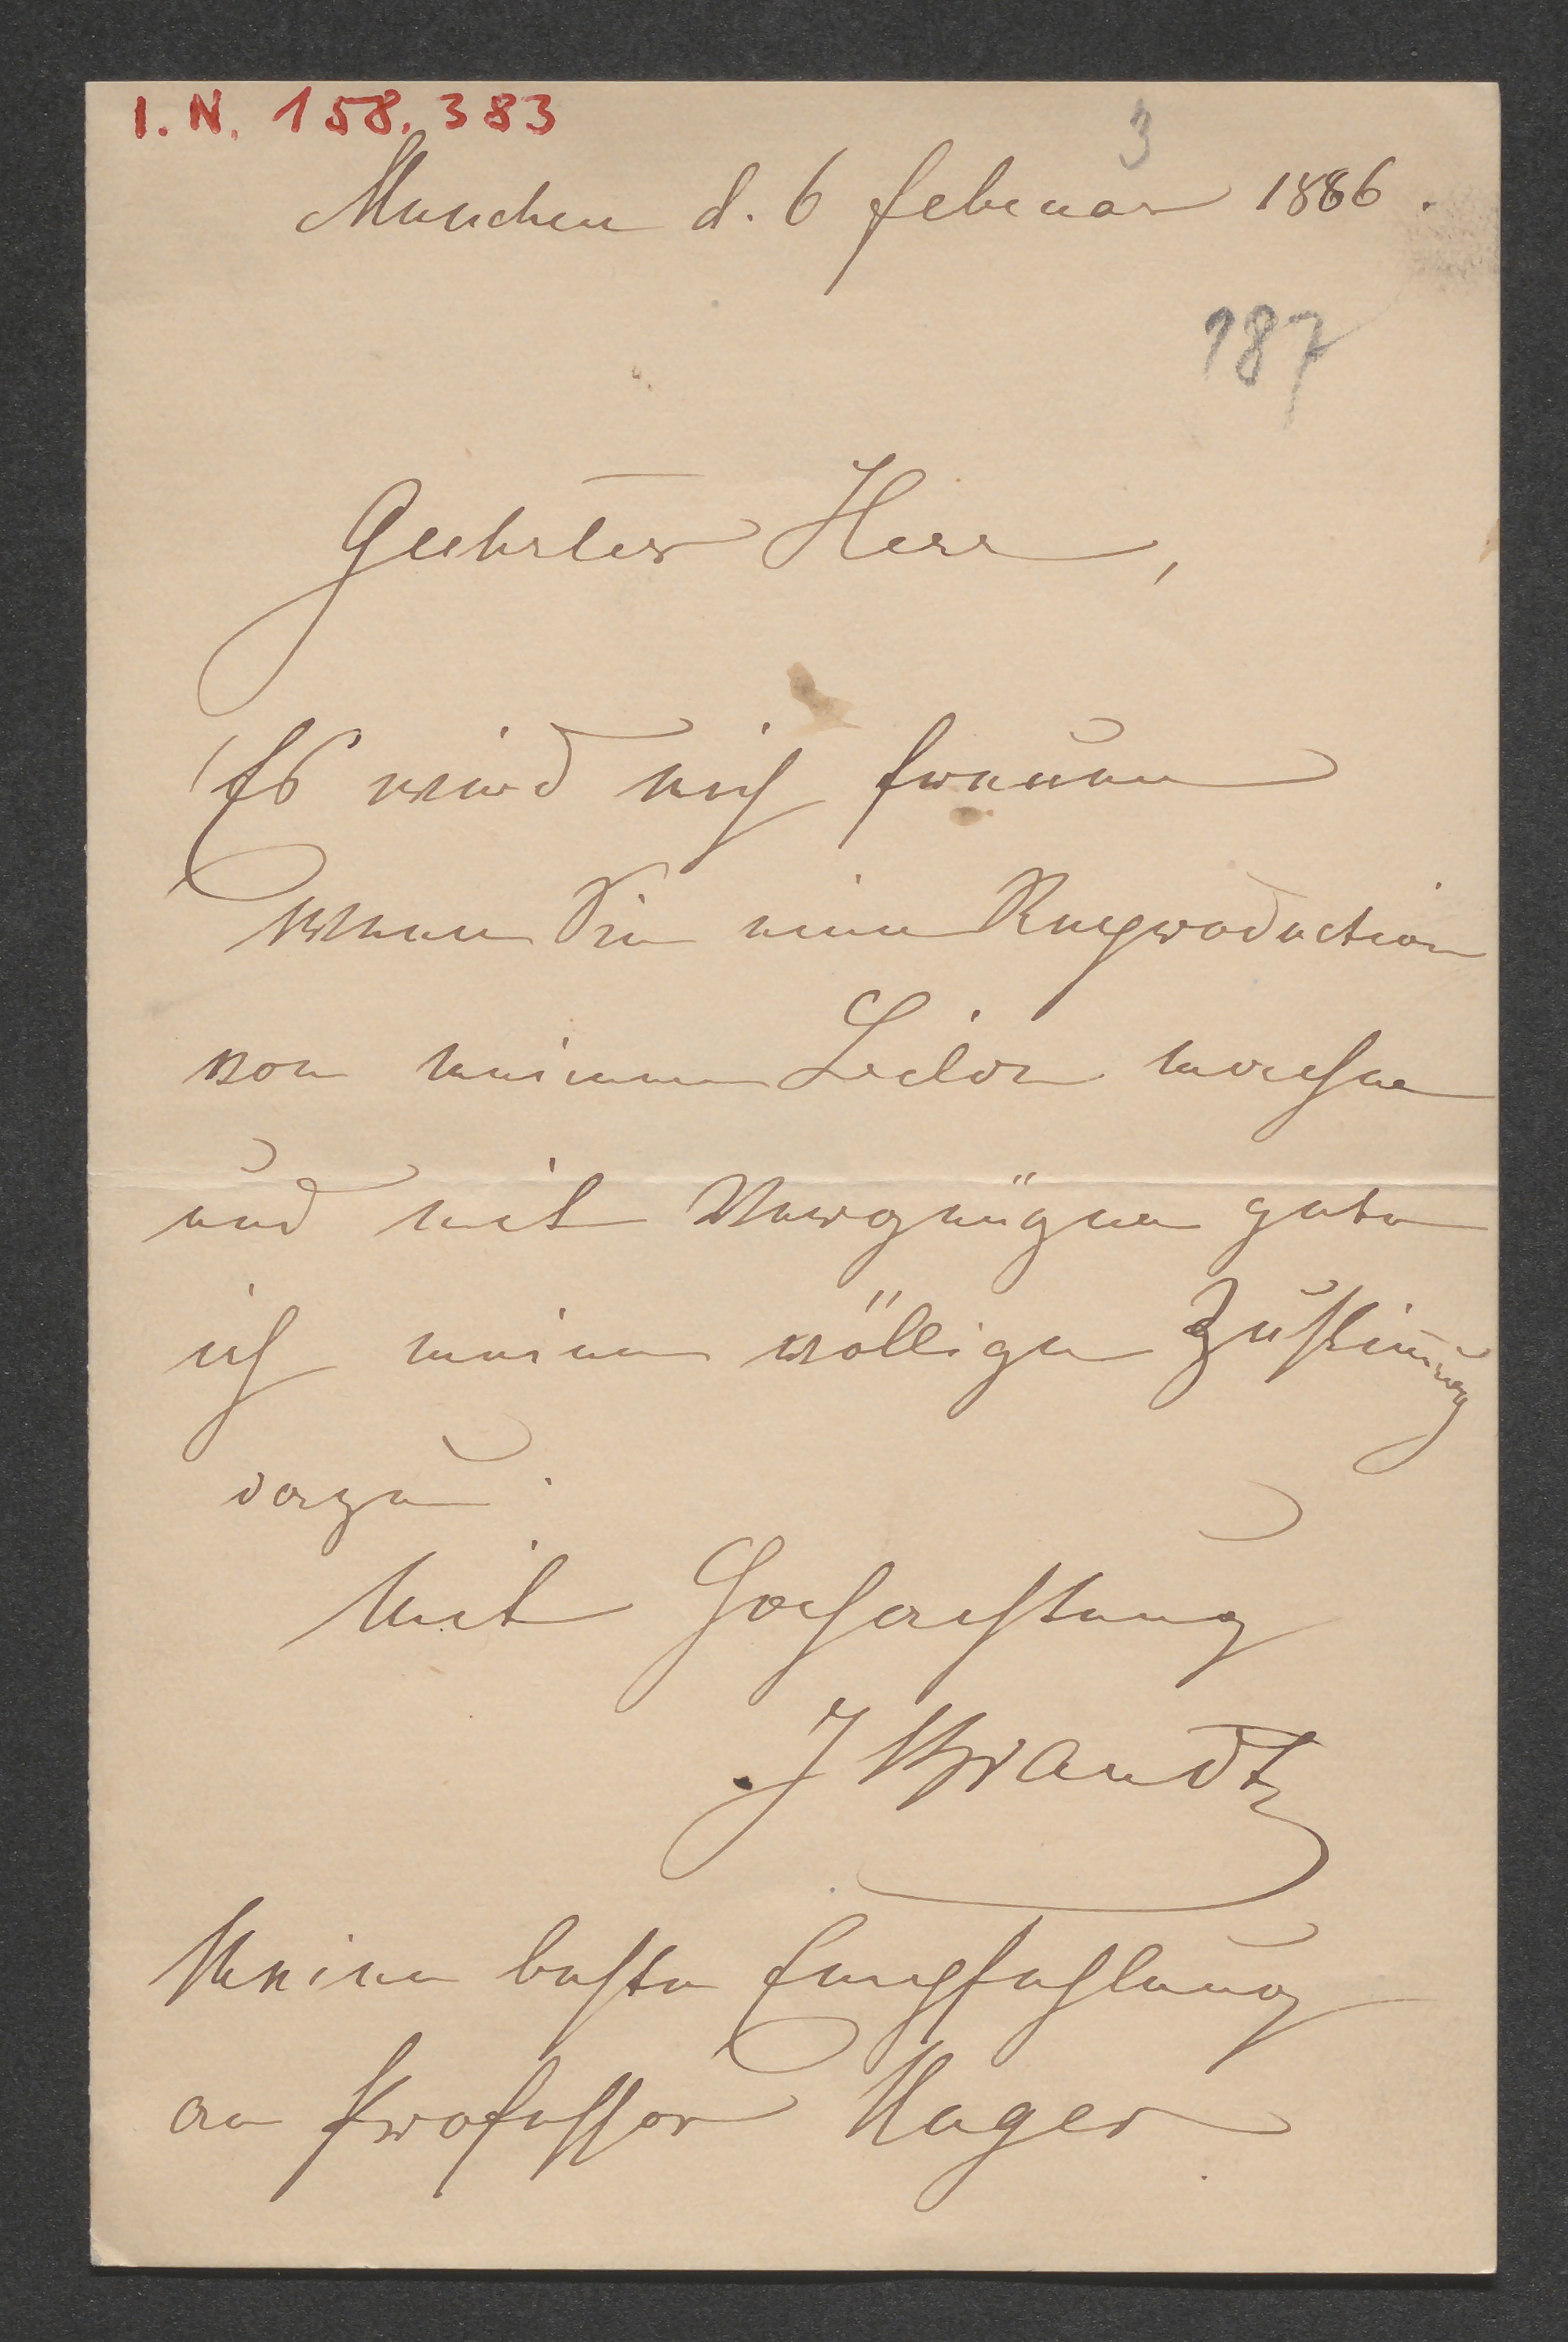 I.N. 158.383
3
Munchen d. 6 februar 1886.
187
Geehrter Herr,
Es wird mich freuen
wenn Sie eine Reproduction
von meinem machen
und mit Vergnügen gebe
ich meine völlige Zustim̄ung
dazu.
Mit Hochachtung
J Brandt
Meine beste Empfehlung
an Professor Wager